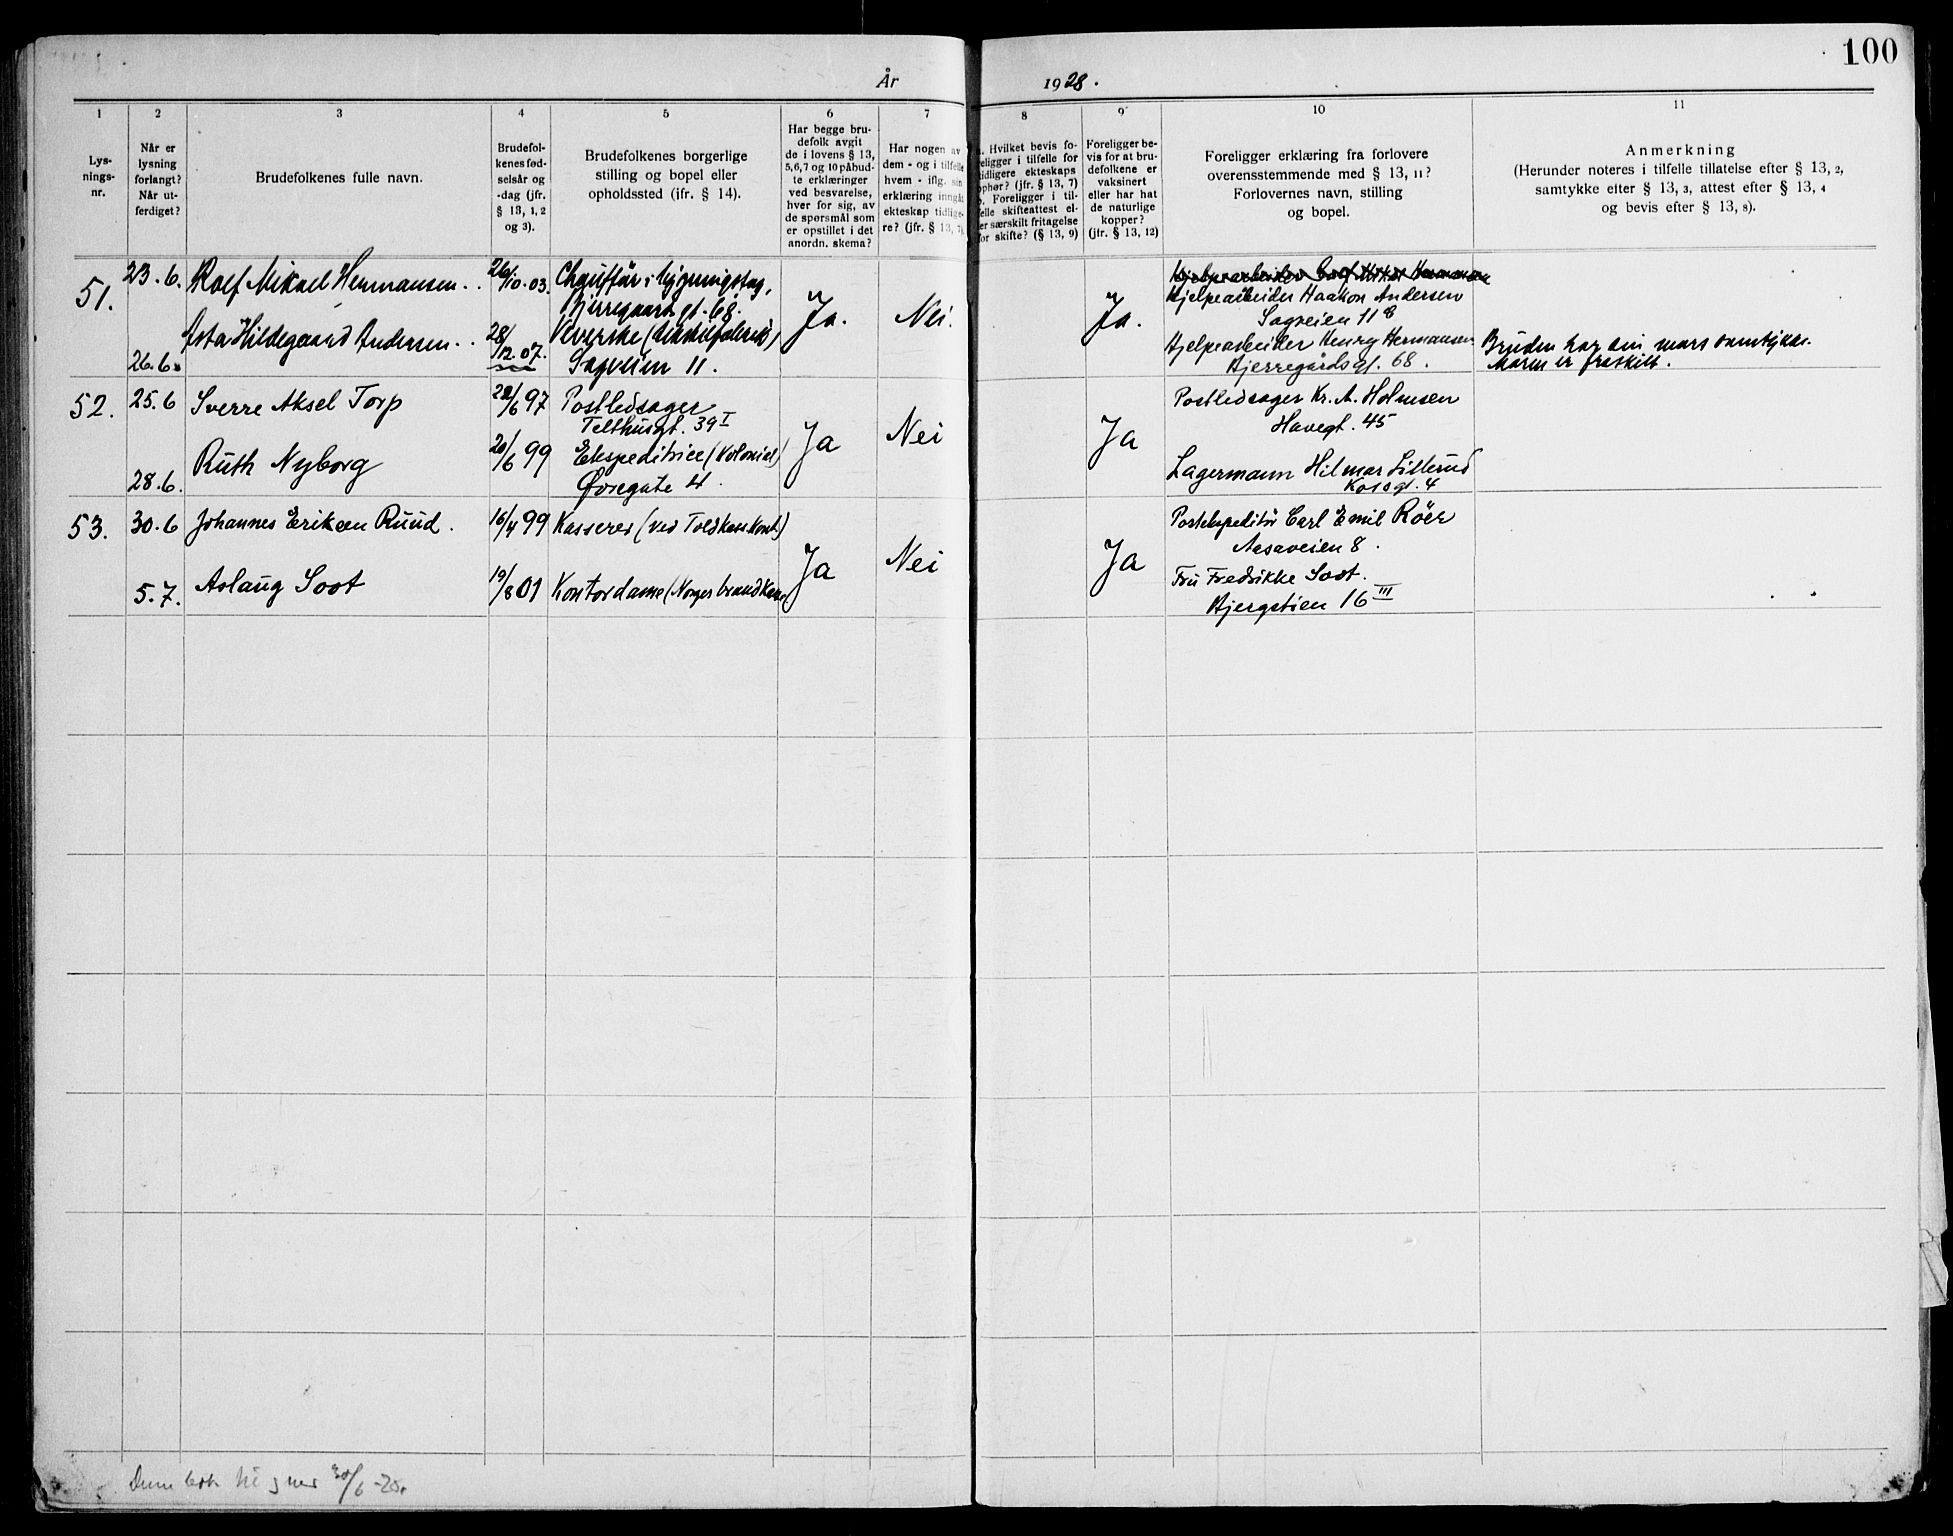 100
År 1928.
1
Lys-
nings-
nr.
2
Når er
lysning
forlangt?
Når ut-
ferdiget?
3
Brudefolkenes fulle navn.
4
Brudefol-
kenes fød-
selsår og
-dag (jfr.
§ 13, 1, 2
og 3).
5
Brudefolkenes borgerlige
stilling og bopel eller
opholdssted (ifr. § 14).
6
Har begge bru-
defolk avgit
de i lovens § 13,
5,6,7 og 10 påbud-
te erklæringer
ved besvarelse,
hver for sig, av
de spørsmål som
er opstillet i det
anordn. skema?
7
Har nogen av
dem - og i tilfelle
hvem - iflg. sin
erklæring inngåt
ekteskap tidlige-
re? (jfr. § 13, 7).
8
a. Hvilket bevis fo-
religger i tilfelle for
tidligere ekteskaps
ophør? (jfr. § 13, 7)
b. Foreligger i til-
felle skifteattest el-
ler særskilt fritagelse
for skifte? (§ 13, 9)
9
Foreligger be-
vis for at bru-
defolkene er
vaksinert
eller har hat
de naturlige
kopper?
(jfr. § 13, 12)
10
Foreligger erklæring fra forlovere
overensstemmende med § 13, 11?
Forlovernes navn, stilling
og bopel.
11
Anmerkning
(Herunder noteres i tilfelle tillatelse efter § 13, 2,
samtykke efter § 13, 3, attest efter § 13, 4
og bevis efter § 13, 8).
51.
23.6.
26.6.
Rolf Mikael Hermansen.
Asta Hildegaard Andersen.
26/10-03.
28/12.07.
Chauffør i bygningsfag,
Bjerregaards gt. 68.
Veverske (
Sagveien 11.
Ja.
Nei.
Ja.
Hjelpearbeider Haakon Andersen
Sagveien 11 8
Hjelpearbeider Henry Hermansen
Bjerregårdsgt. 68.
Bruden har sin mors samtykke.
Moren er fraskilt.
52.
25.6
28.6.
Sverre Aksel Torp
Ruth Nyborg
/6 97
20/6 99
Postledsager
Telthusgt. 39 I
Ekspeditrice (Kolonial)
Øvregate 4.
Ja
Nei
Ja
Postledsager Kr. A. Holmsen
Havegt. 45
Lagermann Hilmar Lillerud
4
53.
30.6
5.7.
Johannes Eriksen Ruud.
Aslaug Soot
16/4 99
19/8 01
Kasserer (ved Toldkassekont)
Kontordame (Norges brandkasse
Ja
Nei
Ja
Postekspeditør Carl Emil Röer
Aasaveien 8.
Fru Fredrikke Soot.
Bjergstien 16 III